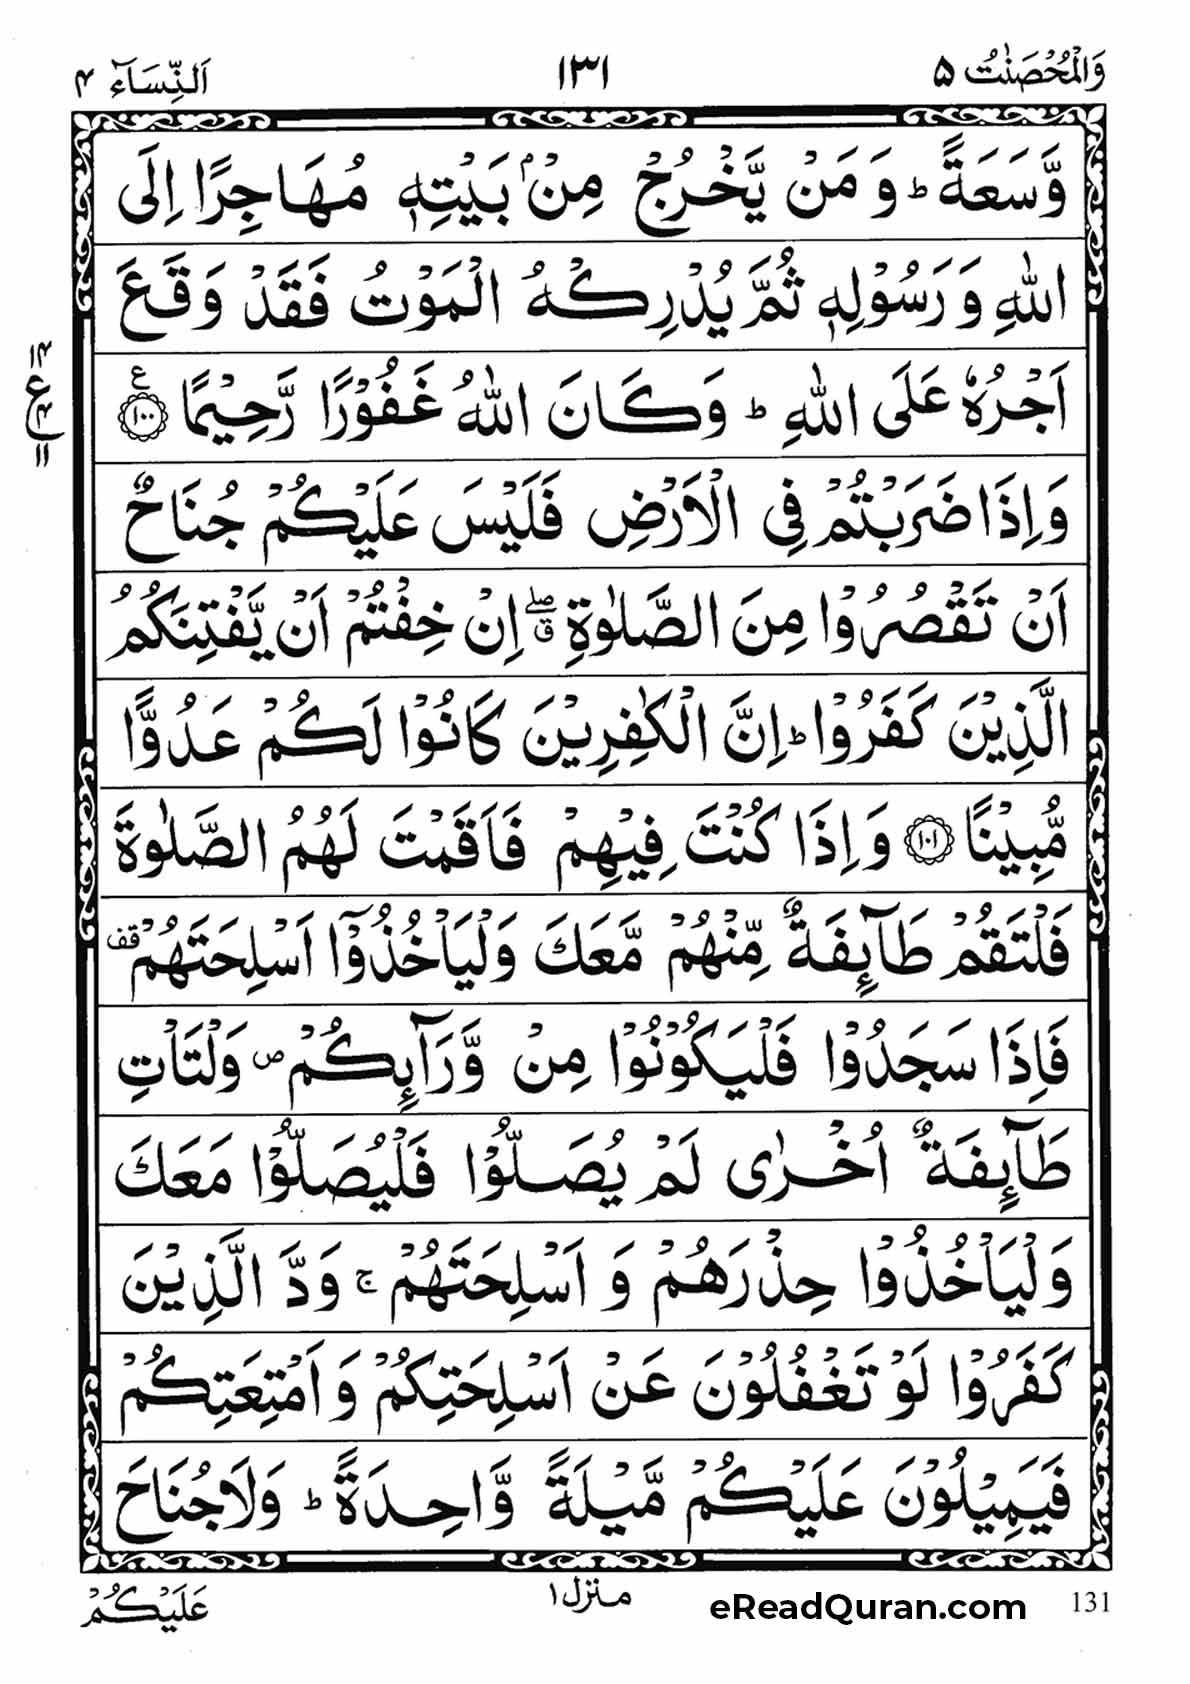 وَالْمُحْصَنٰتُ ۵
۱۳۱
اَلنِّسَآء ۴
وَّسَعَةً ؕ وَ مَنْ يَّخْرُجْ مِنْۢ بَيْتِهٖ مُهَاجِرًا اِلَى
اللّٰهِ وَ رَسُوْلِهٖ ثُمَّ يُدْرِكْهُ الْمَوْتُ فَقَدْ وَقَعَ
اَجْرُهٗ عَلَى اللّٰهِ ؕ وَ كَانَ اللّٰهُ غَفُوْرًا رَّحِيْمًا ﴿۱۰۰﴾ ع
۱۴
ع
۴
۱۱
وَ اِذَا ضَرَبْتُمْ فِي الْاَرْضِ فَلَيْسَ عَلَيْكُمْ جُنَاحٌ
اَنْ تَقْصُرُوْا مِنَ الصَّلٰوةِ ۖۗ اِنْ خِفْتُمْ اَنْ يَّفْتِنَكُمُ
الَّذِيْنَ كَفَرُوْا ؕ اِنَّ الْكٰفِرِيْنَ كَانُوْا لَكُمْ عَدُوًّا
مُّبِيْنًا ﴿۱۰۱﴾ وَ اِذَا كُنْتَ فِيْهِمْ فَاَقَمْتَ لَهُمُ الصَّلٰوةَ
فَلْتَقُمْ طَآئِفَةٌ مِّنْهُمْ مَّعَكَ وَلْيَاْخُذُوْٓا اَسْلِحَتَهُمْ قف
فَاِذَا سَجَدُوْا فَلْيَكُوْنُوْا مِنْ وَّرَآئِكُمْ ص وَلْتَاْتِ
طَآئِفَةٌ اُخْرٰى لَمْ يُصَلُّوْا فَلْيُصَلُّوْا مَعَكَ
وَلْيَاْخُذُوْا حِذْرَهُمْ وَ اَسْلِحَتَهُمْ ۚ وَدَّ الَّذِيْنَ
كَفَرُوْا لَوْ تَغْفُلُوْنَ عَنْ اَسْلِحَتِكُمْ وَ اَمْتِعَتِكُمْ
فَيَمِيْلُوْنَ عَلَيْكُمْ مَّيْلَةً وَّاحِدَةً ؕ وَلَا جُنَاحَ
131
eReadQuran.com
منزل ۱
عَلَيْكُمْ